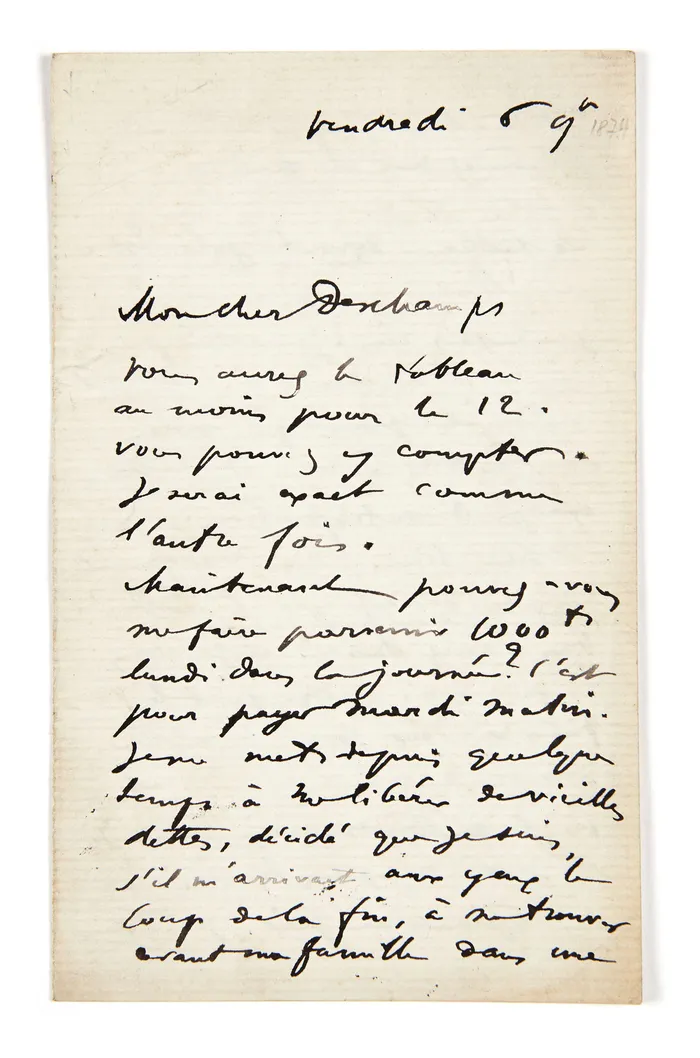 Vendredi 6 9br 1874
Mon cher Deschamps
Vous aurez le tableau
au moins pour le 12.
vous pouvez y compter.
Je serai exact comme
l'autre fois.
Maintenant pouvez-vous
me faire parvenir 1000 fs
lundi dans la journée? C'est
pour payer mardi matin.
Je me mets depuis quelque
temps à me libérer de vieilles
dettes, décidé que je suis,
s'il m'arrivait aux yeux le
coup de la fin, à me trouver
avant ma famille dans une